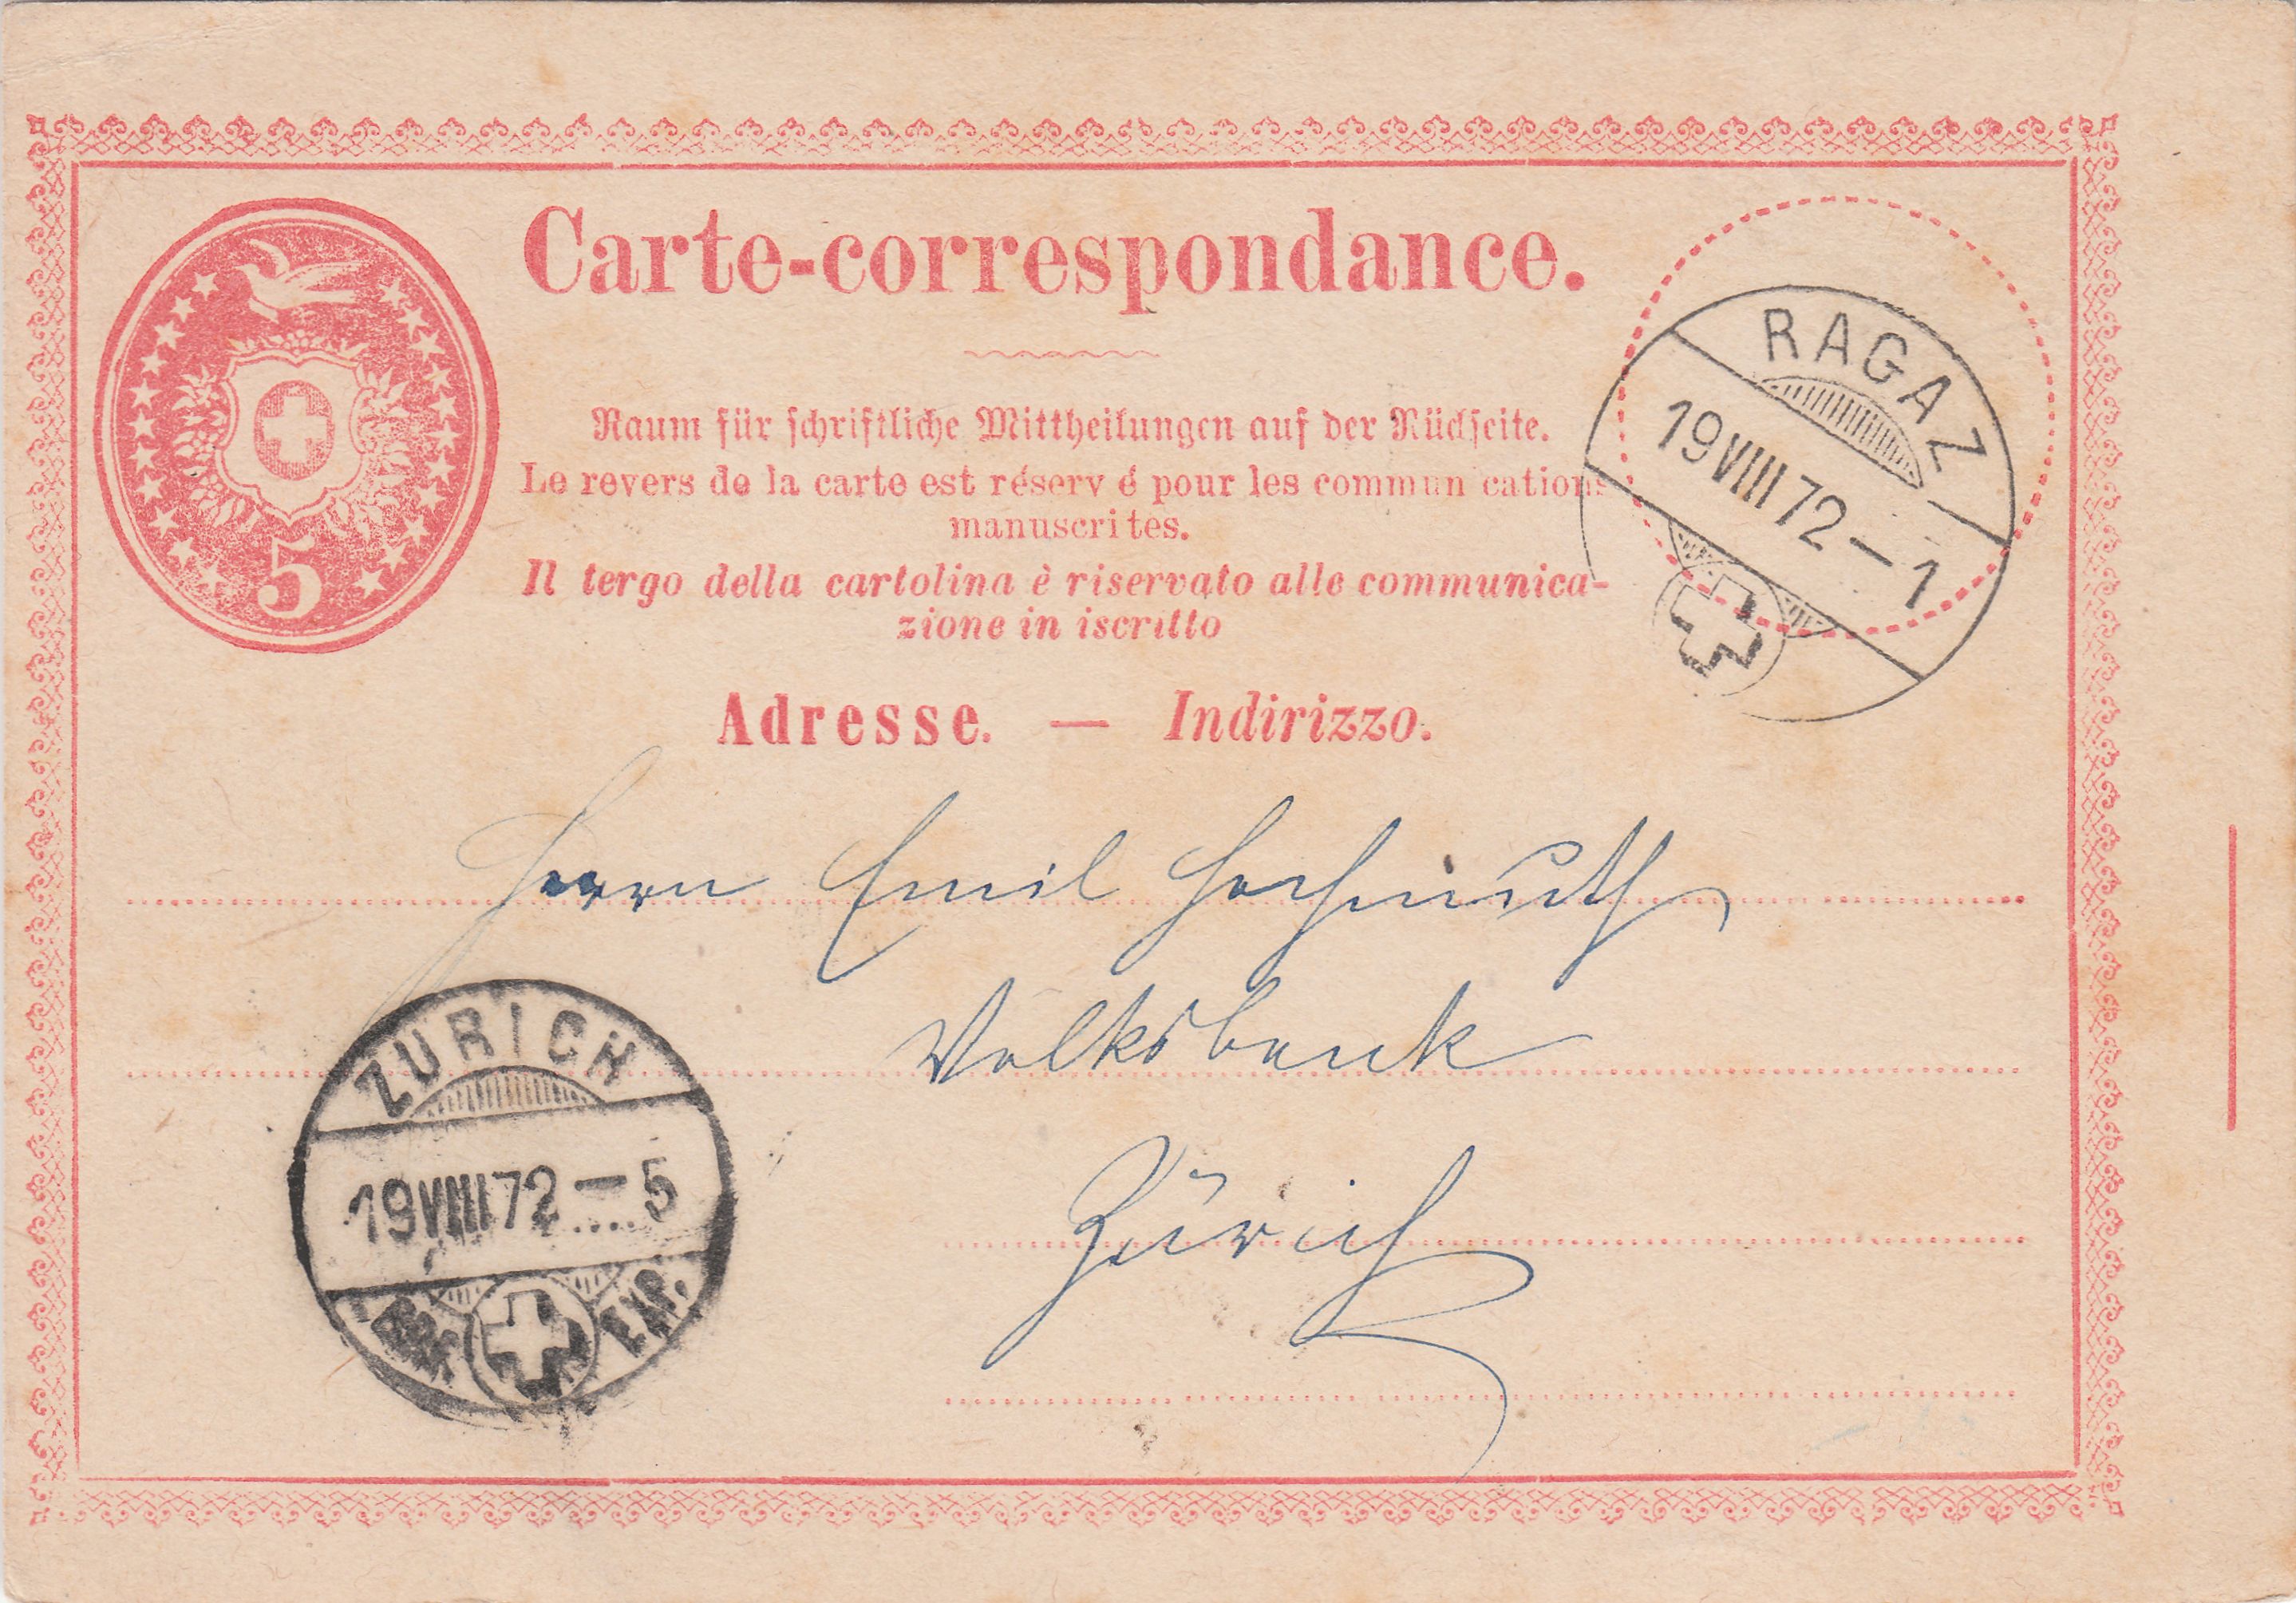 Carte-correspondance.
5
RAGAZ
19 VIII 72 – 1
Raum für schriftliche Mittheilungen auf der Rückseite.
Le revers de la carte est réservé pour les communications
manuscrites.
Il tergo della cartolina è riservato alle communica-
zione in iscritto
Adresse. — Indirizzo.
Herrn Emil Hochmuth
Volksbank
Zürich
ZÜRICH
19 VIII 72 – 5
EXP.